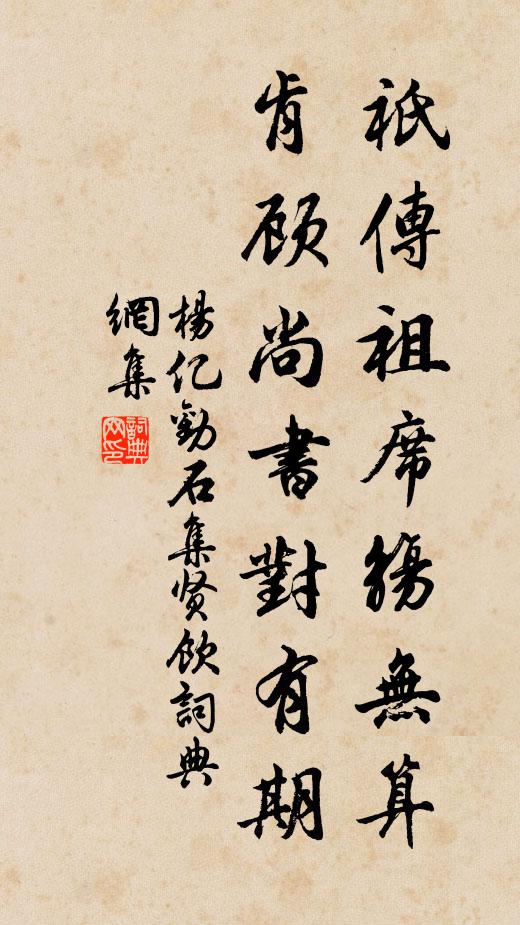 祇傳祖席觴無算
肯顾尚書對有期
楊亿勸石集贤飲詞典
網集
詞典网印